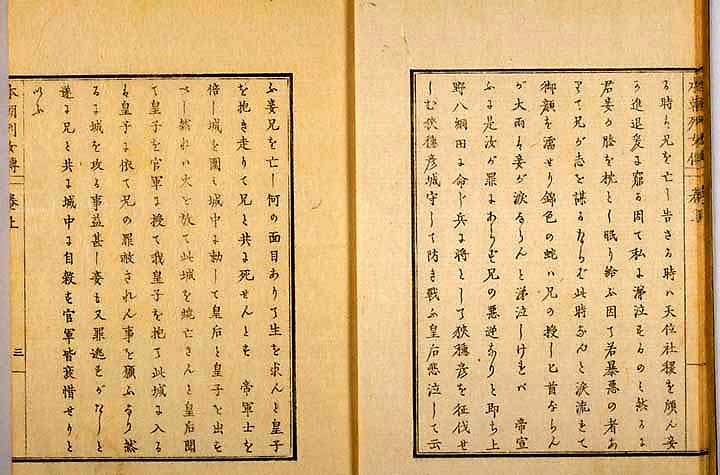 る時ハ兄を亡し告さる時ハ天位社稷を傾ん妾
か進退爰に窮る因て私に涕泣せるのミ然るに
君妾の膝を枕とし眠り給ふ因て若暴惡の者あ
りて兄が志を謀るならば此時ならんと涙流れて
御顔を濡せり錦色の蛇ハ兄の授し匕首ならん
か大雨ハ妾が涙ならんと涕泣しけれバ 帝宣
ふに是汝が罪にあらず兄の惡逆なりと即ち上
野八綱田に命じ兵を將として狹穗彦を征伐せ
しむ狹穗彦城守して防き戰ふ皇后悲泣して云
ふ妾兄を亡し何の面目ありて生を求んと皇子
を抱き走りて兄と共に死せんとす 帝軍士を
倍し城を圍ミ城中に勅して皇后と皇子を出さ
さし然れハ火を放て此城を燒亡さんと皇后聞
て皇子を官軍に授て我皇子を抱て此城に入る
ハ皇子に依て兄の罪赦されん事を願ふなり然
るに城を攻る事益甚し妾も又罪逃るがたしと
遂に兄と共に城中に自殺す官軍皆哀惜せりと
いふ
本朝列女傳 卷上 三